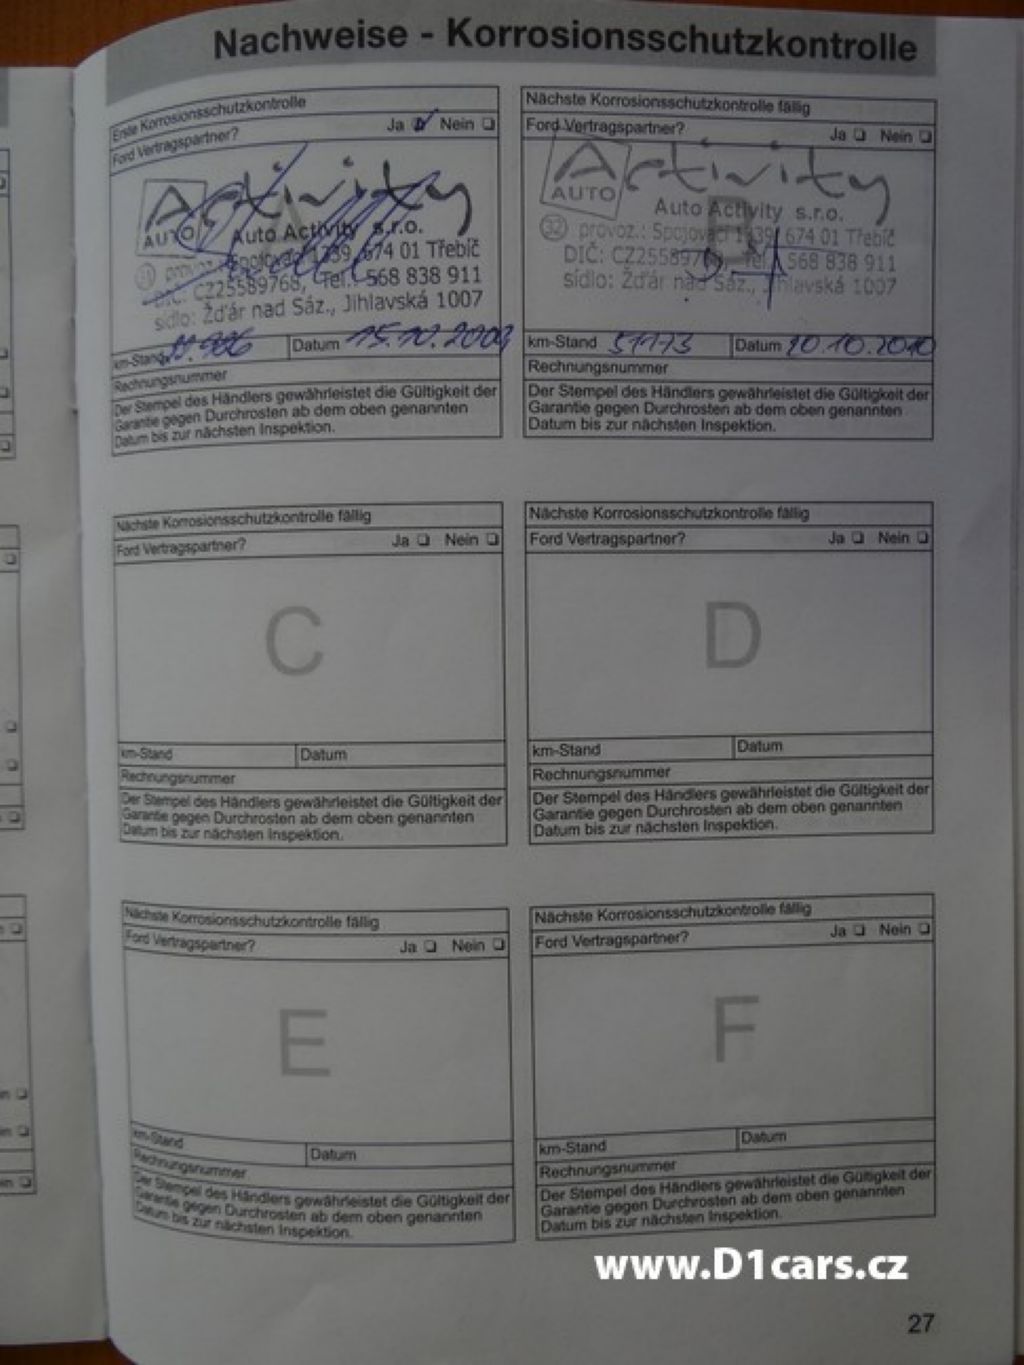 Nachweise - Korrosionsschutzkontrolle
Erste Korrosionsschutzkontrolle
Ford Vertragspartner?
Ja Nein
Activity
AUTO
A
Auto Activity s.r.o.
31 provoz.: Spojovací 1339, 674 01 Třebíč
DIČ: CZ25589768, Tel.: 568 838 911
sídlo: Žďár nad Sáz., Jihlavská 1007
km-Stand
Datum 15.10.2009
Rechnungsnummer
Der Stempel des Händlers gewährleistet die Gültigkeit der
Garantie gegen Durchrosten ab dem oben genannten
Datum bis zur nächsten Inspektion.
Nächste Korrosionsschutzkontrolle fällig
Ford Vertragspartner?
Ja Nein
Activity
AUTO
B
Auto Activity s.r.o.
32 provoz.: Spojovací 1339, 674 01 Třebíč
DIČ: CZ25589768, Tel.: 568 838 911
sídlo: Žďár nad Sáz., Jihlavská 1007
km-Stand 51173
Datum 20.10.2010
Rechnungsnummer
Der Stempel des Händlers gewährleistet die Gültigkeit der
Garantie gegen Durchrosten ab dem oben genannten
Datum bis zur nächsten Inspektion.
Nächste Korrosionsschutzkontrolle fällig
Ford Vertragspartner?
Ja Nein
C
km-Stand
Datum
Rechnungsnummer
Der Stempel des Händlers gewährleistet die Gültigkeit der
Garantie gegen Durchrosten ab dem oben genannten
Datum bis zur nächsten Inspektion.
Nächste Korrosionsschutzkontrolle fällig
Ford Vertragspartner?
Ja Nein
D
km-Stand
Datum
Rechnungsnummer
Der Stempel des Händlers gewährleistet die Gültigkeit der
Garantie gegen Durchrosten ab dem oben genannten
Datum bis zur nächsten Inspektion.
Nächste Korrosionsschutzkontrolle fällig
Ford Vertragspartner?
Ja Nein
E
km-Stand
Datum
Rechnungsnummer
Der Stempel des Händlers gewährleistet die Gültigkeit der
Garantie gegen Durchrosten ab dem oben genannten
Datum bis zur nächsten Inspektion.
Nächste Korrosionsschutzkontrolle fällig
Ford Vertragspartner?
Ja Nein
F
km-Stand
Datum
Rechnungsnummer
Der Stempel des Händlers gewährleistet die Gültigkeit der
Garantie gegen Durchrosten ab dem oben genannten
Datum bis zur nächsten Inspektion.
www.D1cars.cz
27